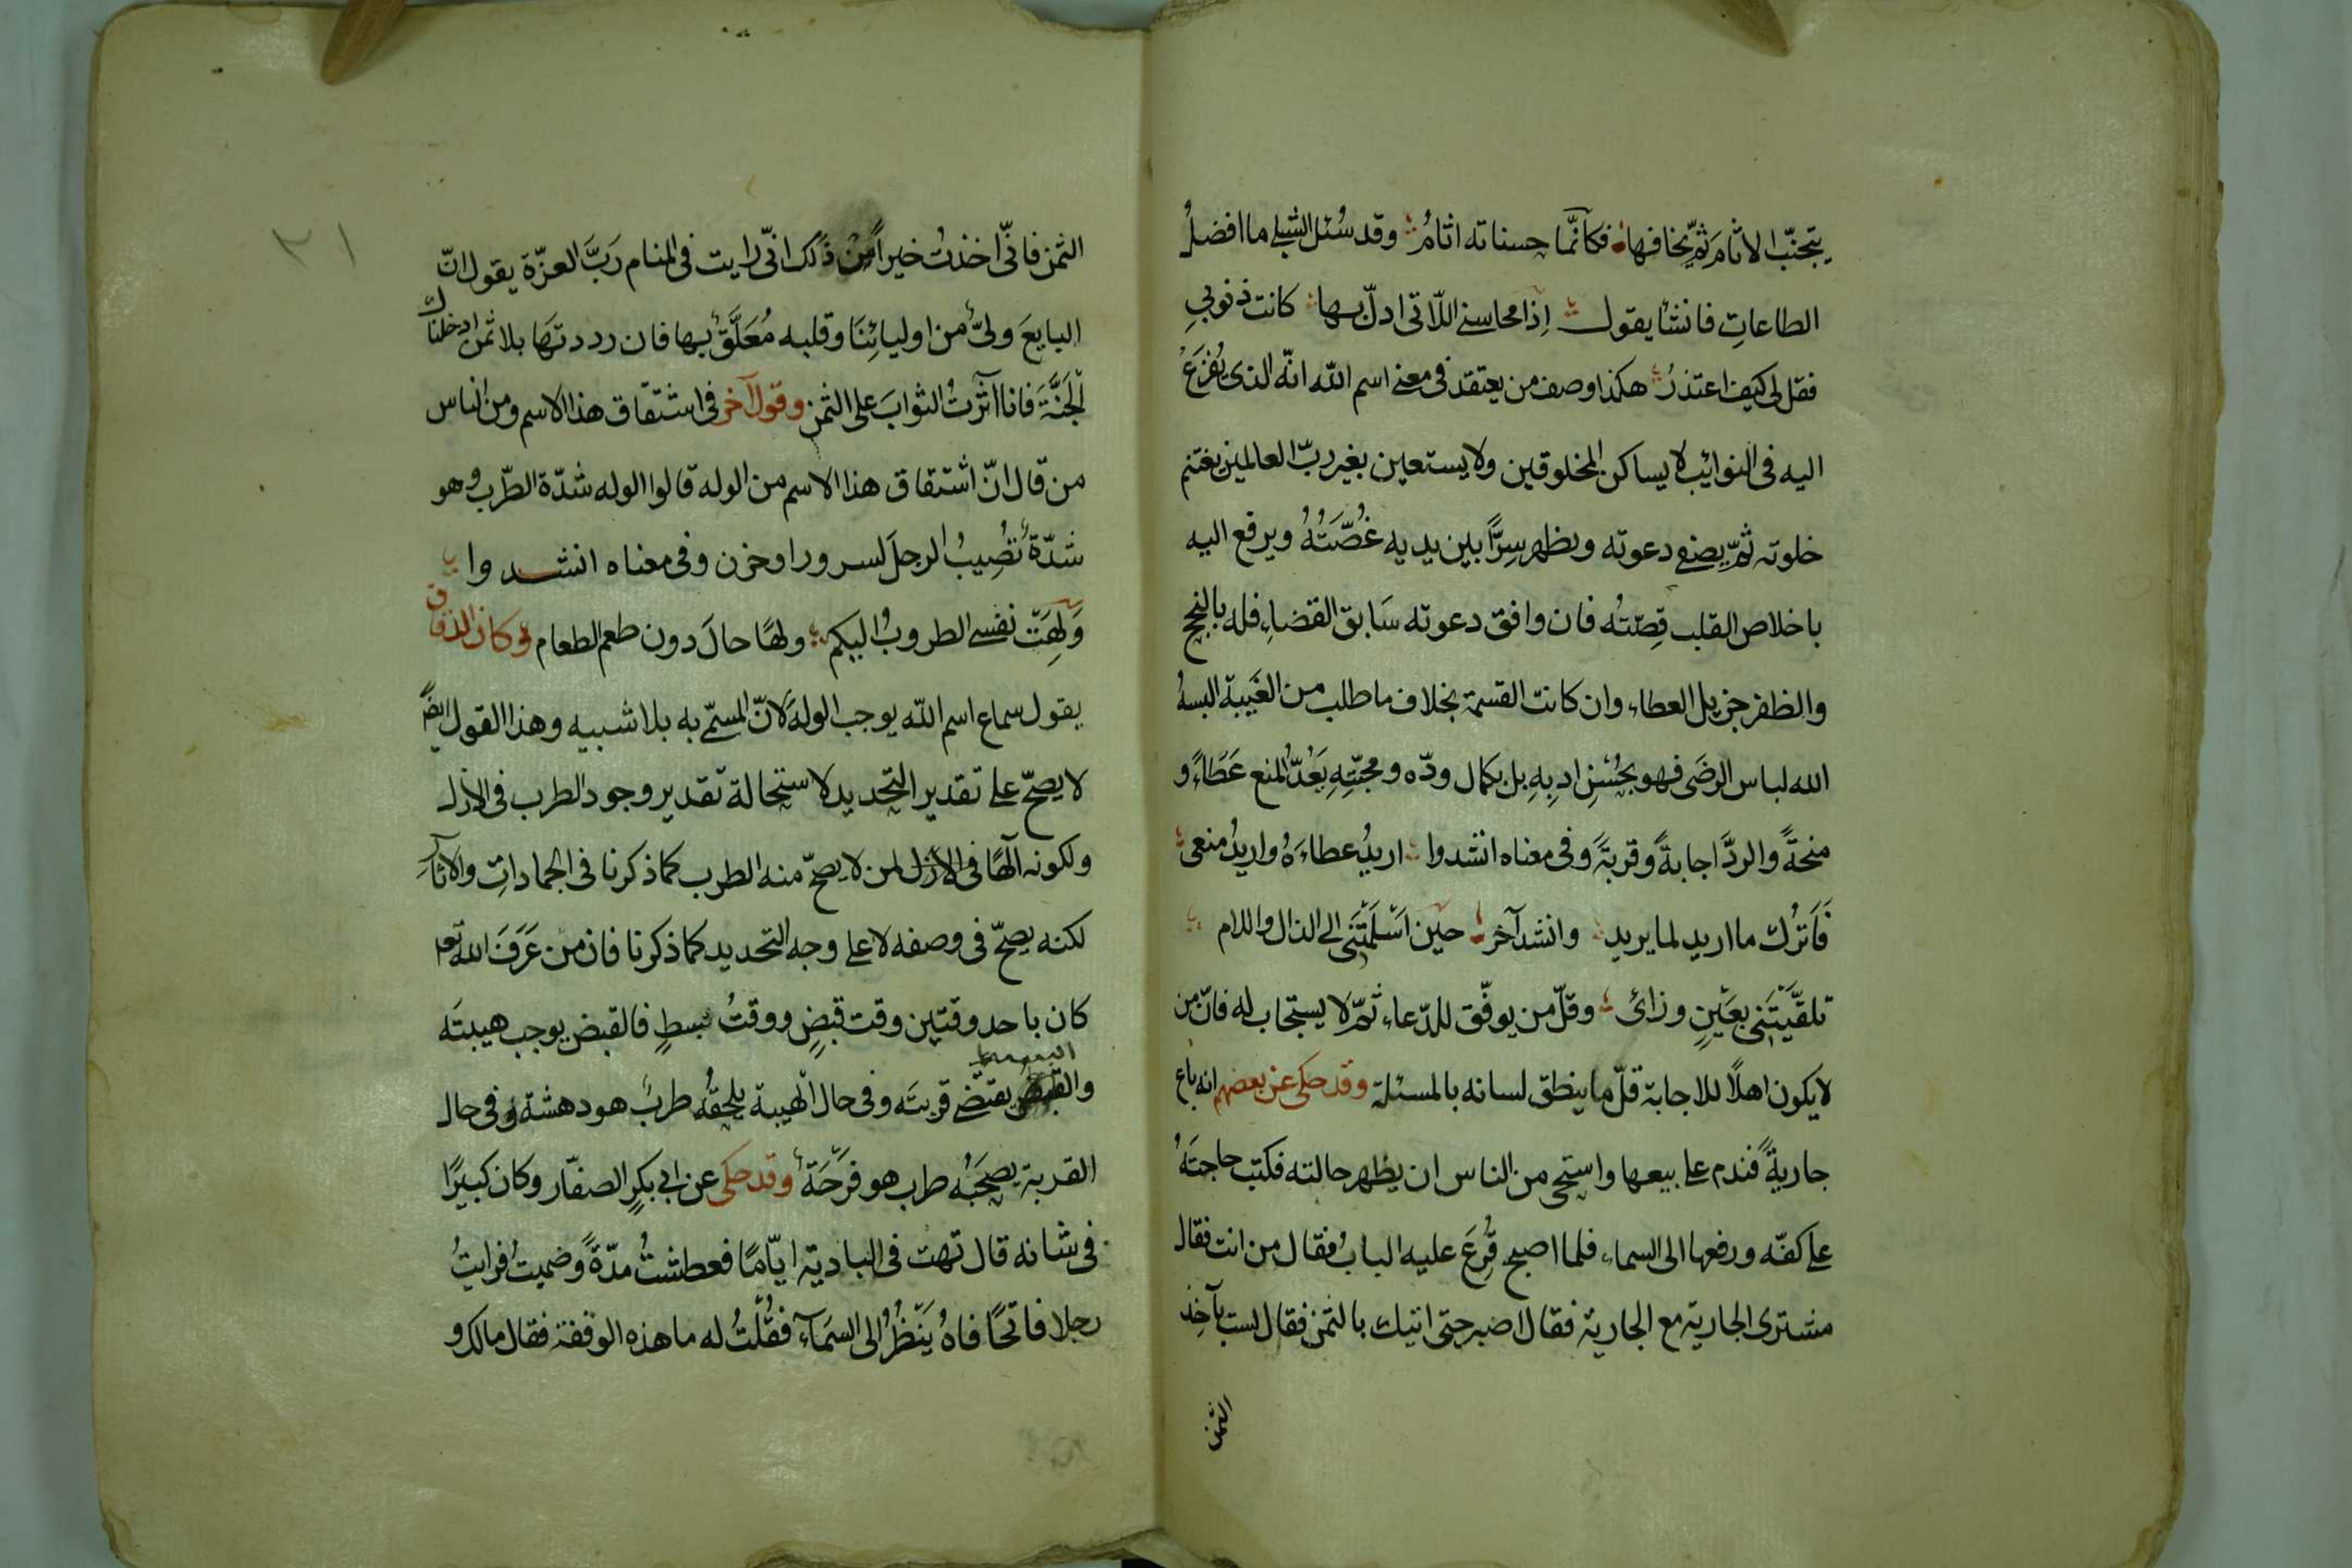 يتجنّب الاثامَ ثمّ يخافها فكانّما حسناته اثامُ وقد سُئل الشبلى ما افضلُ
الطاعاتِ فانشأ يقول إذا محاسنى اللّاتى ادلّ بها كانت ذنوبى
فقل لى كيف اعتذرُ هكذا وصف من يعتقد فى معنى اسم الله انّه الذى يُفزَعُ
اليه فى النوائب لا يساكن المخلوقين ولا يستعين بغير ربّ العالمين يغتنم
خلوته ثمّ يصفى دعوته ويظهر سِرًّا بين يديه غُصَّتُهُ ويرفع اليه
باخلاص القلب قِصّتُه فان وافق دعوته سَابق القضاءِ فله بالنجح
والظفر جزيل العطاء وان كانت القسمة بخلاف ما طلب من الغَيبة البسهُ
الله لباس الرضَى فهو بحُسْنِ ادبِهِ بل بكمال ودّه ومحبّتِهِ يَعُدّ المنع عَطَاءً و
منحةً والردَّ اجابةً وقربةً وفى معناه انشدوا اريدُ عطاءَهُ واريدُ منعى
فَاَترُك ما اريد لما يريد وانشد آخر حين اَسْلَمْتَنى الى الذال واللام
تلقَّيْتَنى بعَيْنٍ وزائ وقلّ من يوفّق للدّعاء ثمّ لا يستجاب له فانّ من
لا يكون اهلًا للاجابة قلّ ما ينطق لسانه بالمسئلة وقد حكى عن بعضهم انه باع
جاريةً فندم على بيعها واستحى من الناس ان يظهر حالته فكتب حاجتَهُ
على كفّه ورفعها الى السماء فلما اصبح قُرِعَ عليه البابُ فقال من انت فقال
مشترى الجارية مع الجارية فقال اصبر حتى اتيك بالثمن فقال لست بآخِذ
الثمن
٢١
الثمن فانّى اخذتُ خيراً من ذلك انّى رايت فى المنام رَبَّ العزّة يقول انّ
البايعَ ولىٌّ من اوليائِنَا وقلبه مُعَلَّقٌ بها فان رددتهَا بلا ثمن ادخلناك
الجَنَّةَ فانا آثرْتُ الثوابَ على الثمن وقول آخر فى اشتقاق هذا الاسم ومن الناس
من قال انّ اشتقاق هذا الاسم من الوله قالوا الوله شدّة الطّرب وهو
شدّةٌ تُصِيبُ الرجلَ لسرور او حزن وفى معناه انشدوا
وَلِهَتْ نفسى الطروبُ اليكم ولهًا حالَ دون طعم الطعام وكان الدقاق
يقول سماع اسم الله يوجب الولهَ لانّ المسمّى به بلا شبيه وهذا القول ايضً
لا يصحّ على تقدير التحديد لاستحالة تقدير وجود الطرب فى الازل
ولكونه الٰهًا فى الازل لمن لا يصحّ منه الطرب كما ذكرنا فى الجماداتِ والاثار
لكنه يصحّ فى وصفه لا على وجه التحديد كما ذكرنا فان من عَرَفَ الله تع
كان باحد وقتين وقت قبضٍ ووقتُ بسطٍ فالقبض يوجب هيبتَه
البسط
والقبض يقتضى قربتَه وفى حال الهيبة يلحقُه طربٌ هو دهشة وفى حال
القربة يصحَبُه طرب هو فَرْحَةٌ وقد حكى عن ابى بكرٍ الصفّار وكان كبيرًا
فى شانه قال تهت فى البادية ايّامًا فعطشتُ مدّةً وضميتُ فرايتُ
رجلا فاتحًا فاهُ يَنْظُرُ الى السمَآءِ فقُلْتُ له ما هذه الوقفة فقال مالك و